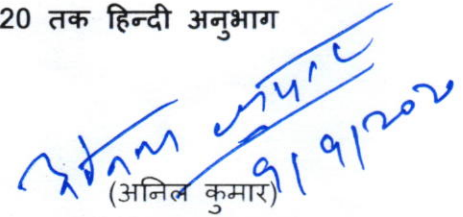 20 तक हिन्दी अनुभाग
अनिल कुमार
9/9/2020
(अनिल कुमार)